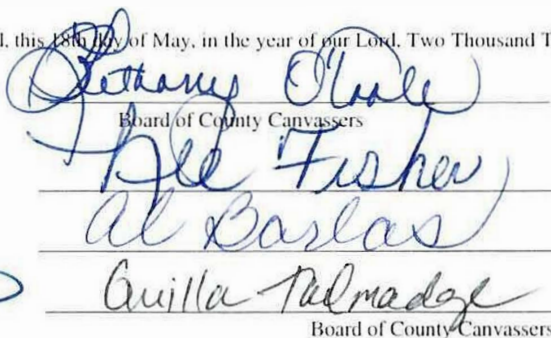 l, this 18th day of May, in the year of our Lord, Two Thousand T
Bethany O'Toole
Board of County Canvassers
Lee Fisher
Al Barlas
Quilla Talmadge
Board of County Canvassers